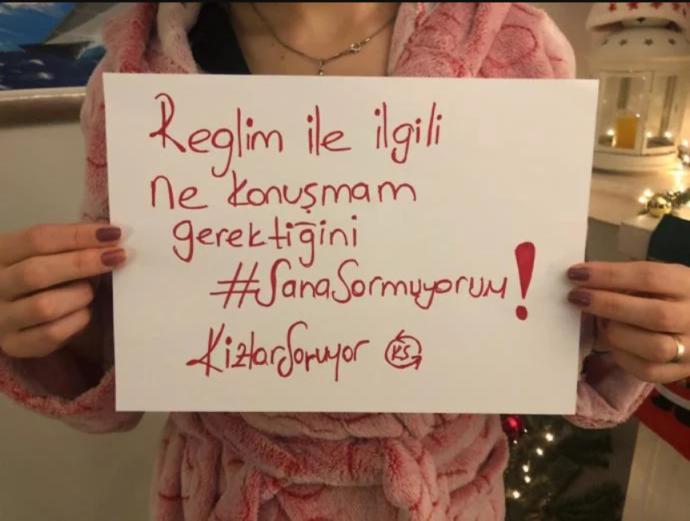 Reglim ile ilgili
ne konuşmam
gerektiğini
#SanaSormuyorum!
KızlarSoruyor KS